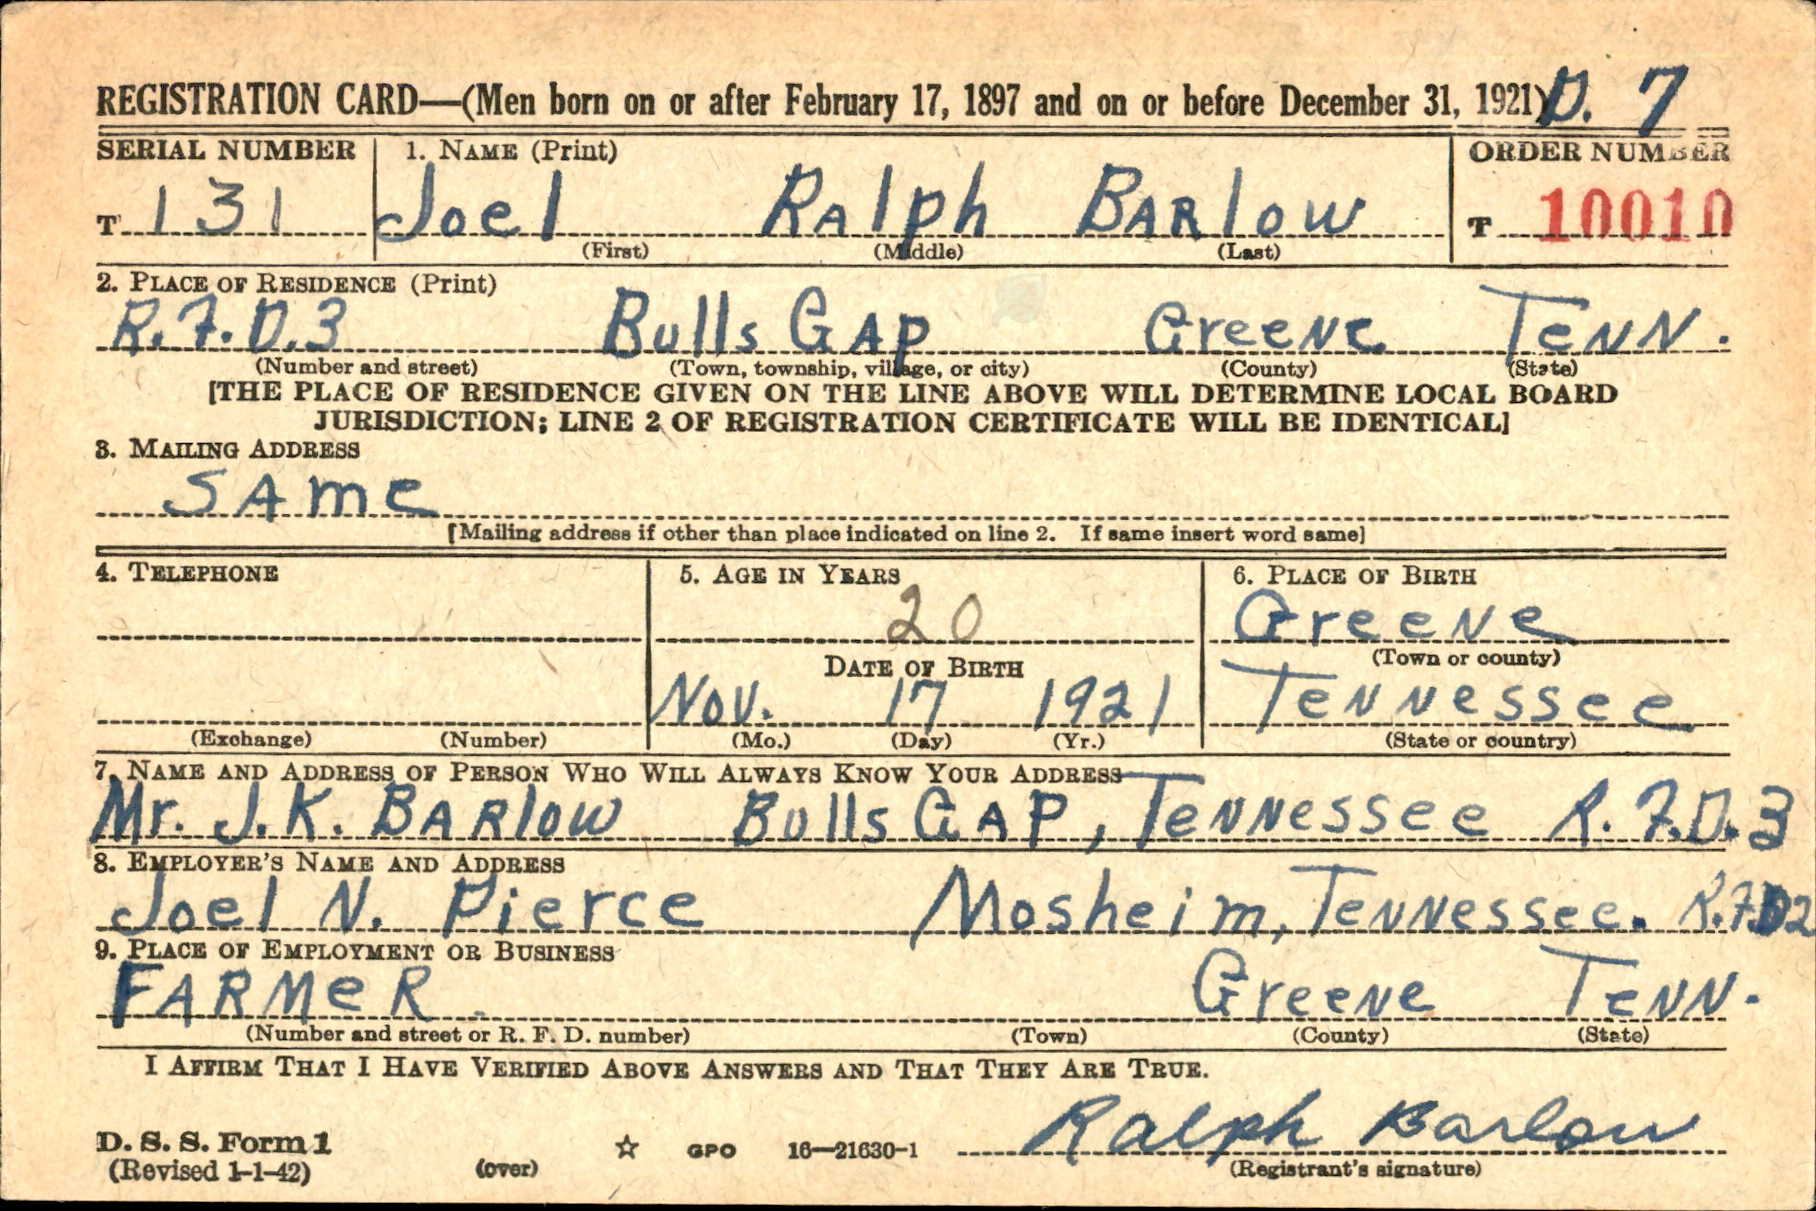 REGISTRATION CARD—(Men born on or after February 17, 1897 and on or before December 31, 1921) D. 7
SERIAL NUMBER 1. NAME (Print) ORDER NUMBER
T 131 Joel Ralph Barlow T 10010
(First) (Middle) (Last)
2. PLACE OF RESIDENCE (Print)
R.F.D.3 Bulls Gap Greene Tenn.
(Number and street) (Town, township, village, or city) (County) (State)
[THE PLACE OF RESIDENCE GIVEN ON THE LINE ABOVE WILL DETERMINE LOCAL BOARD
JURISDICTION; LINE 2 OF REGISTRATION CERTIFICATE WILL BE IDENTICAL]
3. MAILING ADDRESS
Same
[Mailing address if other than place indicated on line 2. If same insert word same]
4. TELEPHONE 5. AGE IN YEARS 6. PLACE OF BIRTH
20 Greene
DATE OF BIRTH (Town or county)
Nov. 17 1921 Tennessee
(Exchange) (Number) (Mo.) (Day) (Yr.) (State or country)
7. NAME AND ADDRESS OF PERSON WHO WILL ALWAYS KNOW YOUR ADDRESS
Mr. J.K. Barlow Bulls Gap, Tennessee R.F.D.3
8. EMPLOYER'S NAME AND ADDRESS
Joel N. Pierce Mosheim, Tennessee. R.F.D2
9. PLACE OF EMPLOYMENT OR BUSINESS
Farmer. Greene Tenn.
(Number and street or R. F. D. number) (Town) (County) (State)
I AFFIRM THAT I HAVE VERIFIED ABOVE ANSWERS AND THAT THEY ARE TRUE.
Ralph Barlow
D. S. S. Form 1 ☆ GPO 16—21630-1
(Revised 1-1-42) (over) (Registrant's signature)